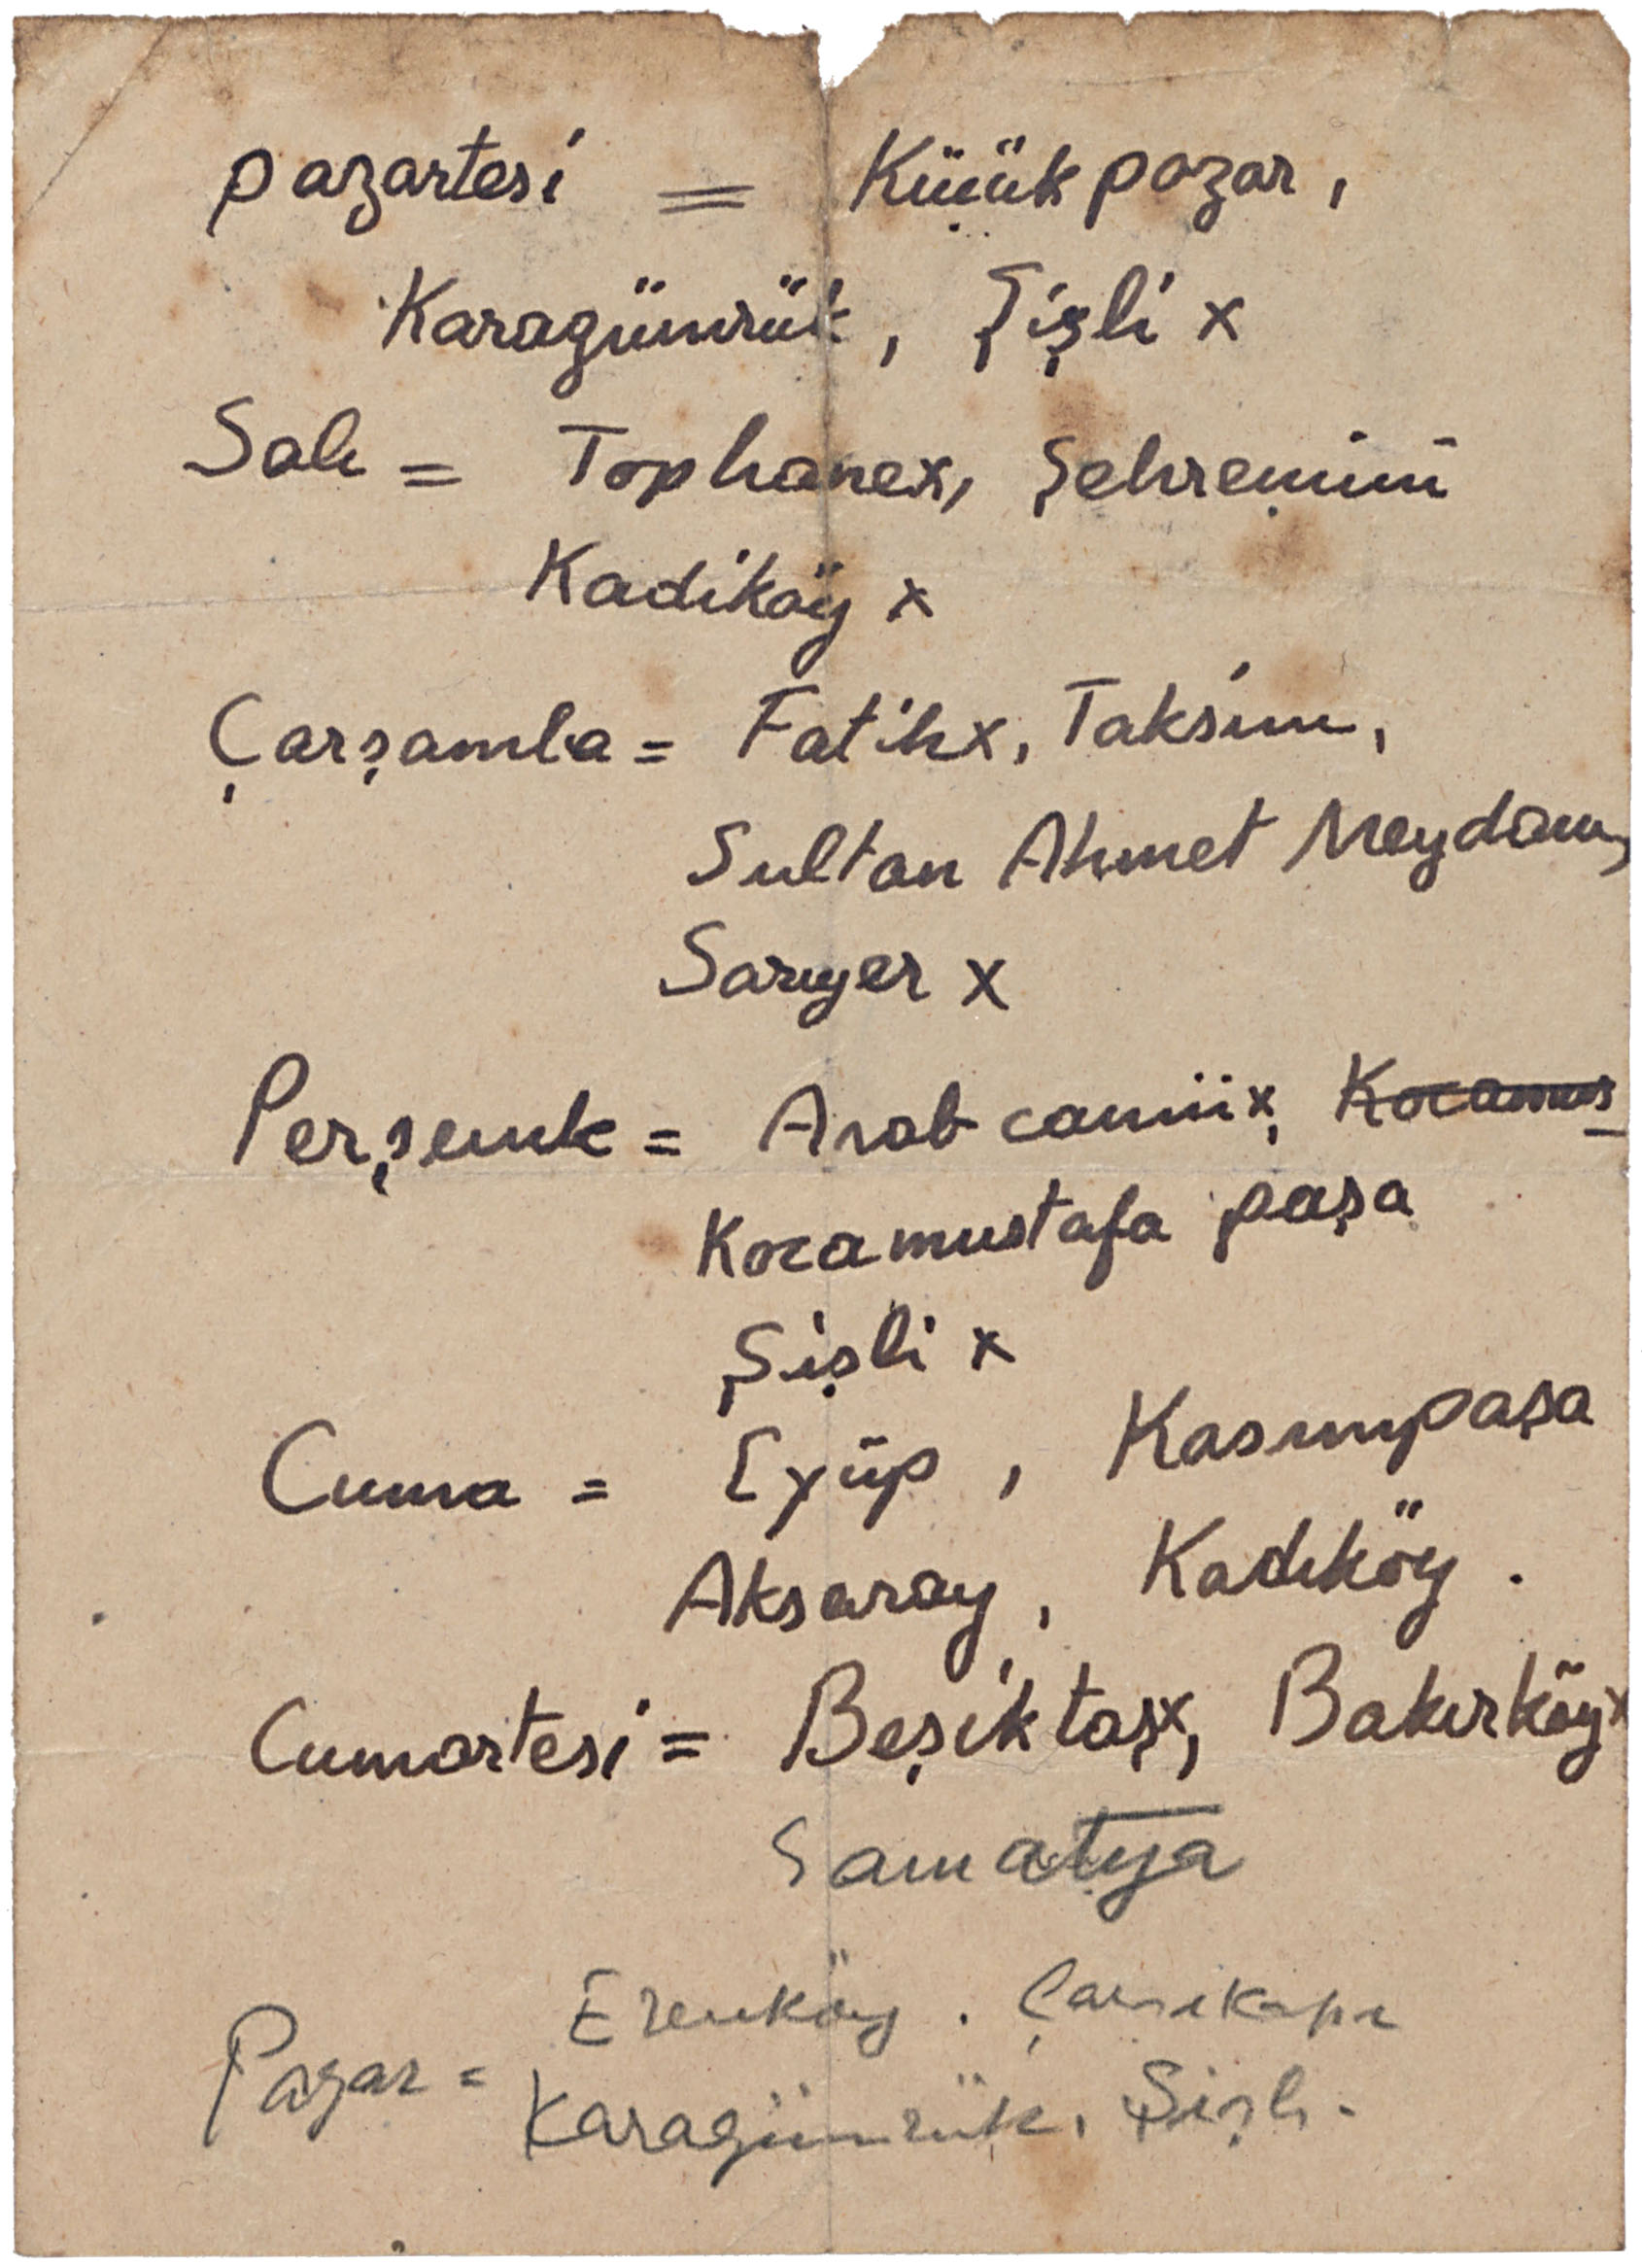 pazartesi = Küçük pazar,
Karagümrük, Şişli x
Salı = Tophane x, Şehremini
Kadiköy x
Çarşamba = Fatih x, Taksim,
Sultan Ahmet Meydanı,
Sarıyer x
Perşembe = Arab camii x, Kocamus
Kocamustafa paşa
Şişli x
Cuma = Eyüp, Kasımpaşa
Aksaray, Kadıköy.
Cumartesi = Beşiktaş x, Bakırköy x
Samatya
Erenköy. Çarşıkapı
Pazar = Karagümrük, Şişli.